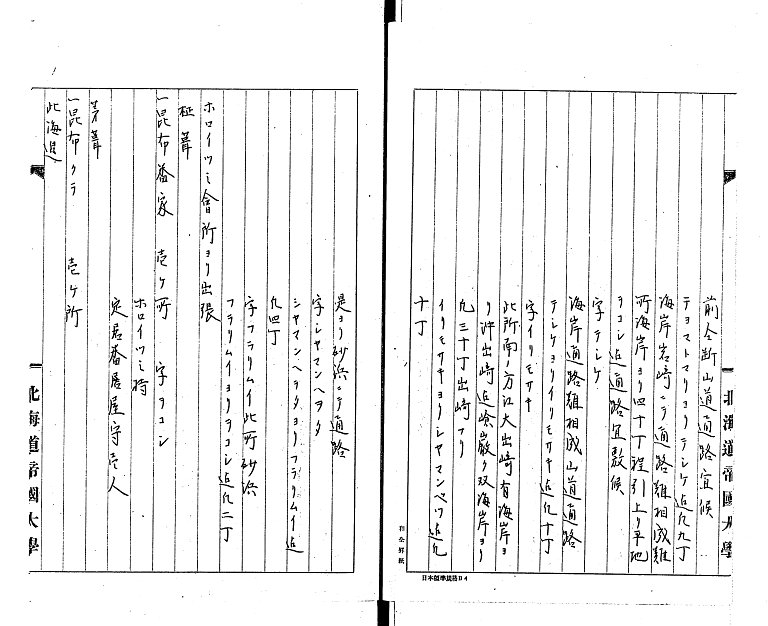 前仝断山道通路宜候
テヨストマリヨリテシケ迄凡九丁
海岸岩崎ニテ通路難相成難
所海岸ヨリ四十丁程引上リ平地
ヲコシ迄通路宜敷候
字テシケ
海岸通路難相成山道通路
テシケヨリイリモサキ迄凡十丁
字イリモサキ
此所南ノ方江大出崎有海岸ヨ
リ沖出崎迄嶮巌双海岸ヨリ
凡三十丁出崎アリ
イリモサキヨリシヤマンベツ迄凡
十丁
北海道帝國大學
和仝罫紙
日本標準規格B4
是ヨリ砂浜ニテ通路
字シヤマンヘヲタ
シヤマンヘヲタヨリフラリムイ迄
凡四丁
字フラリムイ此所砂浜
フラリムイヨリヲコシ迄凡二丁
ホロイツミ會所ヨリ出張
柾葺
一昆布番家 壱ケ所 字ヲコシ
ホロイツミ持
定居番居屋守壱人
茅葺
一昆布クラ 壱ケ所
此海邊
北海道帝國大學